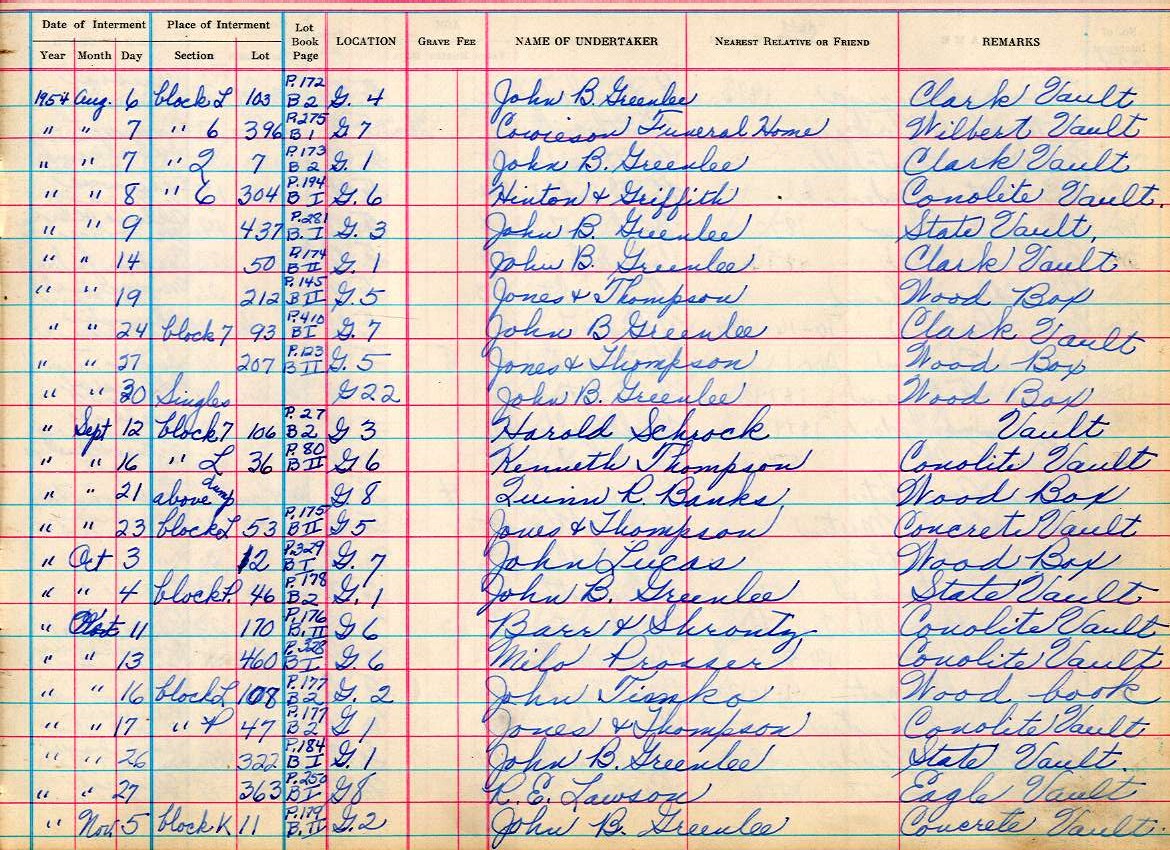 Date of Interment Place of Interment Lot Book Page LOCATION GRAVE FEE NAME OF UNDERTAKER NEAREST RELATIVE OR FRIEND REMARKS
Year Month Day Section Lot
1954 Aug. 6 block L 103 P.172 B 2 G. 4 John B. Greenlee Clark Vault
" " 7 " 6 396 P.275 B 1 G 7 Cowieson Funeral Home Wilbert Vault
" " 7 " 2 7 P.173 B 2 G. 1 John B. Greenlee Clark Vault
" " 8 " 6 304 P.194 B I G. 6 Hinton & Griffith Conolite Vault.
" " 9 437 P.281 B. I G. 3 John B. Greenlee State Vault,
" " 14 50 P.174 B II G. 1 John B. Greenlee Clark Vault
" " 19 212 P.145 B II G. 5 Jones & Thompson Wood Box
" " 24 block 7 93 P.410 B I G. 7 John B Greenlee Clark Vault
" " 27 207 P.123 B II G. 5 Jones & Thompson Wood Box
" " 30 Singles G 22 John B. Greenlee Wood Box
" Sept 12 block 7 106 P. 27 B 2 G 3 Harold Schrock Vault
" " 16 " L 36 P. 80 B II G 6 Kenneth Thompson Conolite Vault
" " 21 above G 8 Quinn R. Banks Wood Box
" " 23 block L 53 P.175 B II G 5 Jones & Thompson Concrete Vault
" Oct 3 12 P.329 B I G. 7 John Lucas Wood Box
" " 4 block P. 46 P.178 B 2 G. 1 John B. Greenlee State Vault
" 11 170 P.176 B. II G 6 Barr & Shrontz Conolite Vault
" " 13 460 B I G. 6 Milo Prosser Conolite Vault
" " 16 block L 108 P.177 B 2 G. 2 John Timko Wood book
" " 17 " P 47 P.177 B 2 G 1 Jones & Thompson Conolite Vault
" " 26 322 P.184 B I G. 1 John B. Greenlee State Vault.
" " 27 363 P.250 B I G 8 R. E. Lawson Eagle Vault
" Nov 5 block K 11 P.179 B. II G. 2 John B. Greenlee Concrete Vault.